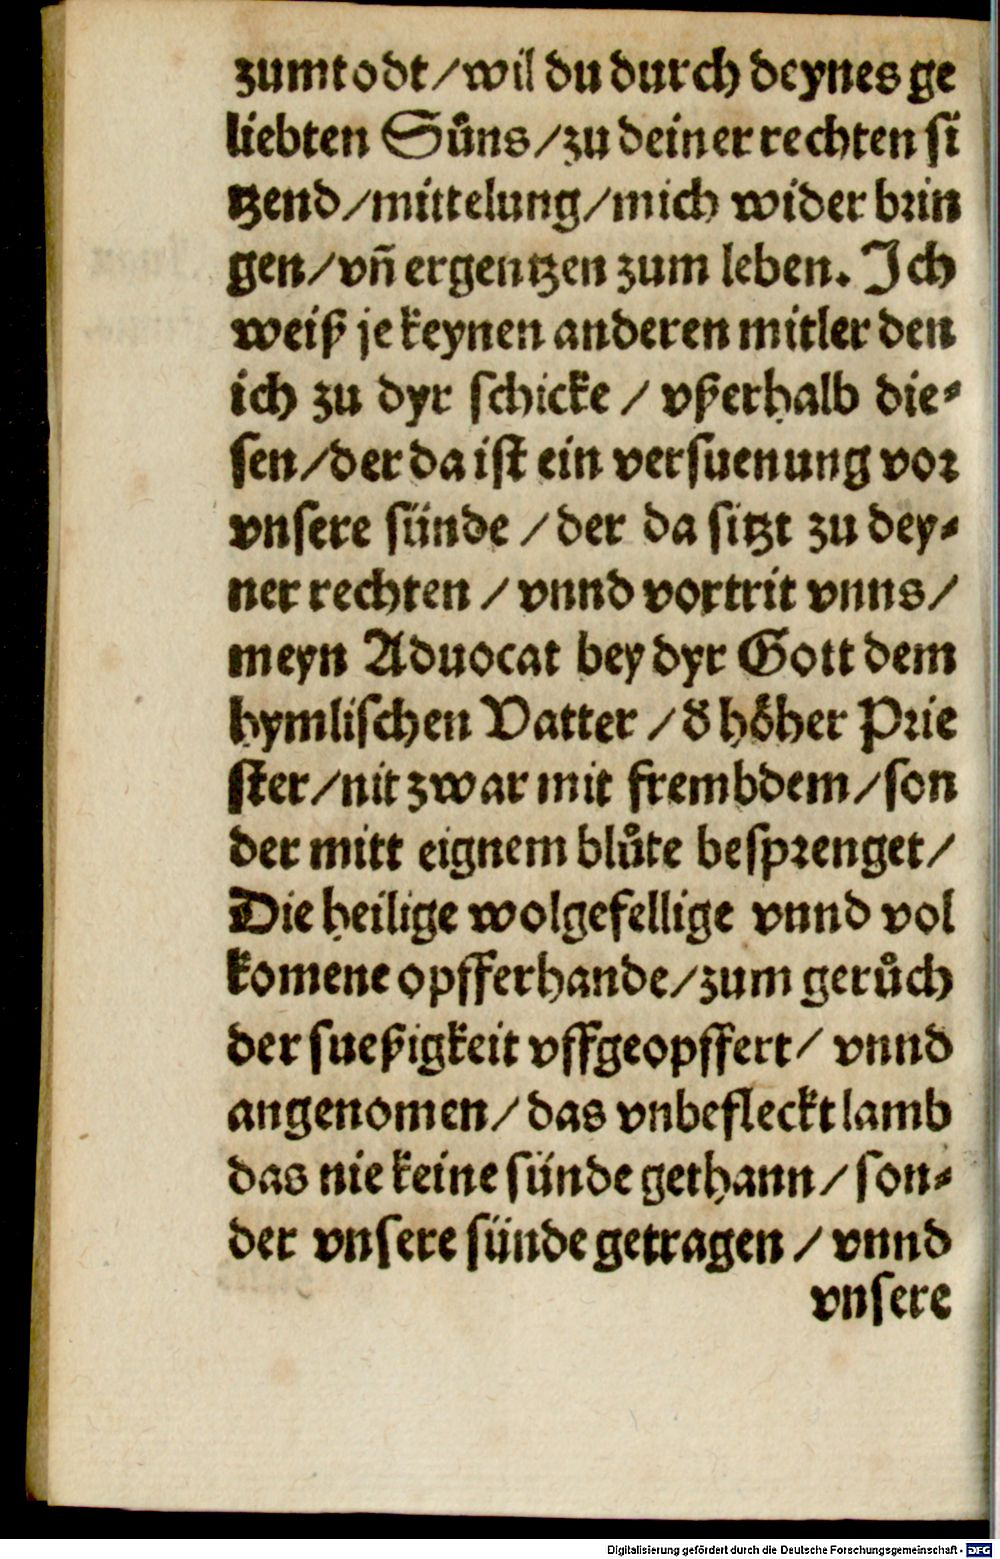 zumtodt/wil du durch deynes ge
liebten Suͤns/zu deiner rechten si
tzend/mittelung/mich wider brin
gen/vñ ergentzen zum leben. Ich
weiß je keynen anderen mitler den
ich zu dyr schicke / vßerhalb die⸗
sen/der da ist ein versuenung vor
vnsere sünde /der da sitzt zu dey⸗
ner rechten / vnnd vortrit vnns/
meyn Aduocat bey dyr Gott dem
hymlischen Vatter /d̕ hoͤher Prie
ster/nit zwar mit frembdem/son
der mitt eignem bluͦte besprenget/
Die heilige wolgefellige vnnd vol
komene opfferhande/zum geruͦch
der sueßigkeit vffgeopffert/ vnnd
angenomen/das vnbefleckt lamb
das nie keine sünde gethann/son⸗
der vnsere sünde getragen / vnnd
vnsere
Digitalisierung gefördert durch die Deutsche Forschungsgemeinschaft - DFG